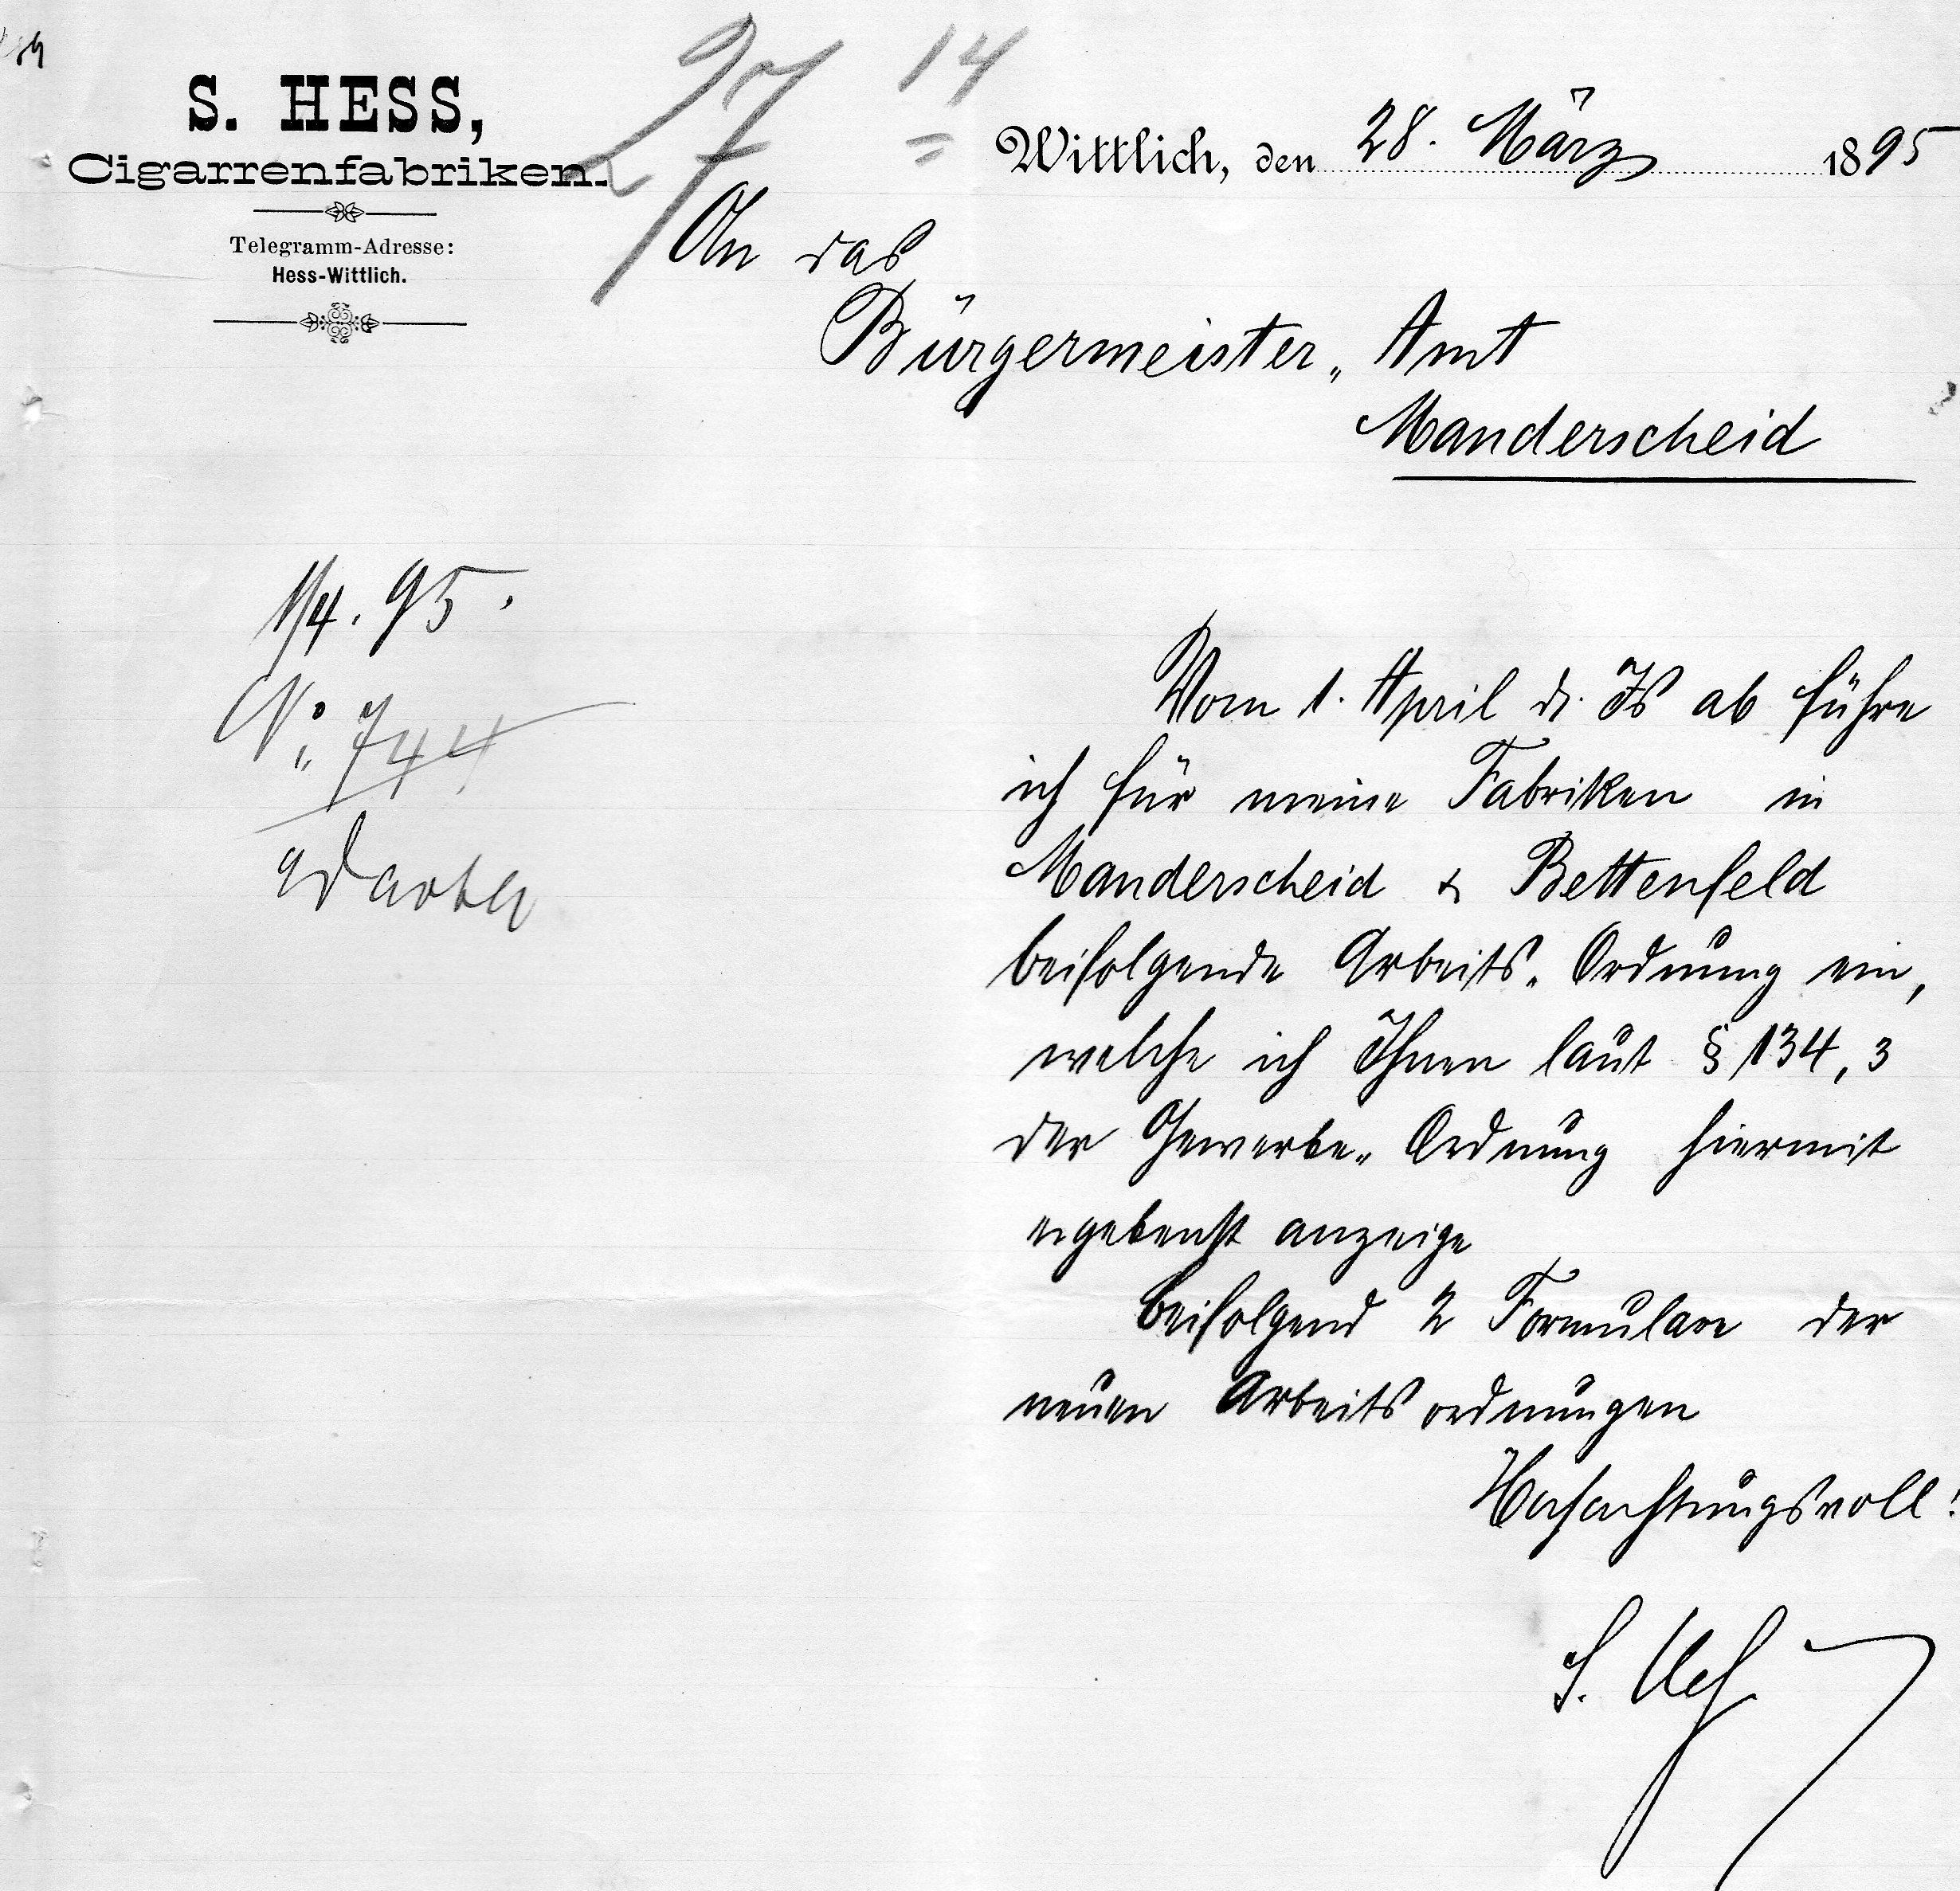 S. HESS,
Cigarrenfabriken.
Telegramm-Adresse:
Hess-Wittlich.
27 14
Wittlich, den 28. März 1895
An das
Bürgermeister-Amt
Manderscheid
1/4. 95.
No 744
Vom 1. April d. Js ab führe
ich für meine Fabriken in
Manderscheid & Bettenfeld
beifolgende Arbeits-Ordnung ein,
welche ich Ihnen laut § 134,3
der Gewerbe-Ordnung hiermit
ergebenst anzeige
Beifolgend 2 Formulare der
neuen Arbeitsordnungen
Hochachtungsvoll!
S. Heß